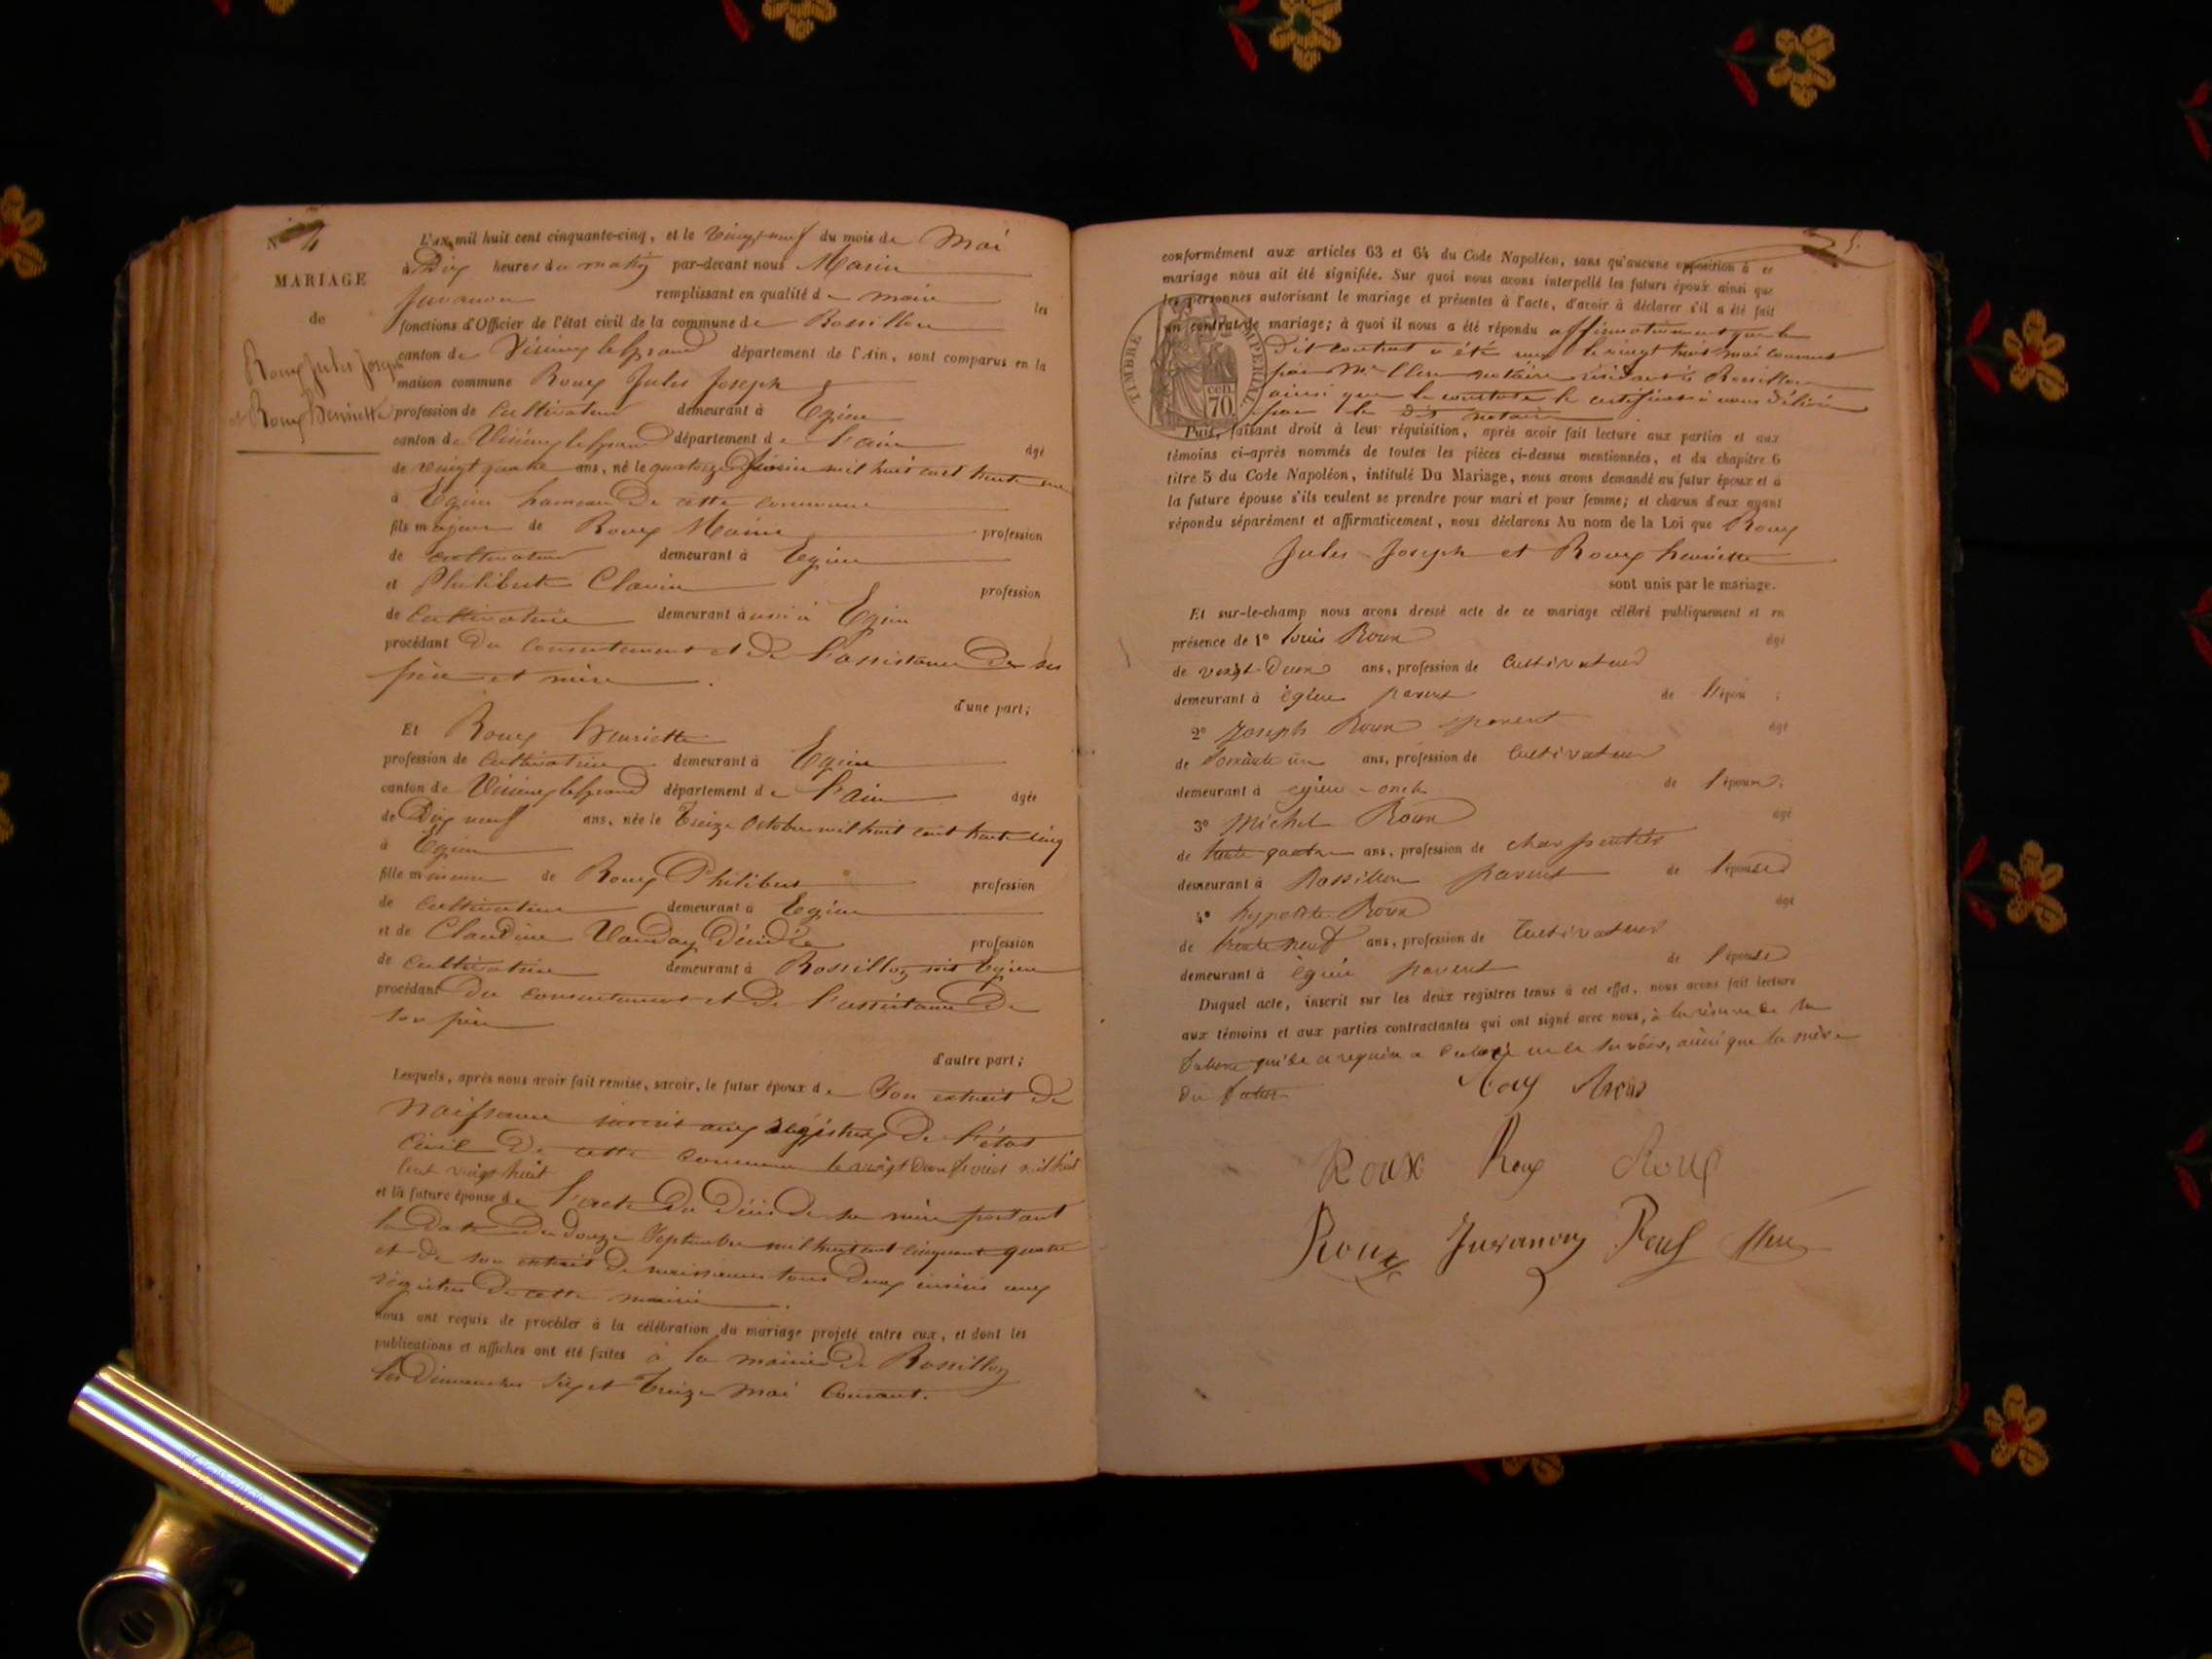 N° 4
MARIAGE
de
Roux Jules Joseph
et Roux henriette
L'an mil huit cent cinquante-cinq, et le vingt neuf du mois de Mai
à Dix heures du matin par-devant nous Marin
Juvanon remplissant en qualité de maire les
fonctions d'Officier de l'état civil de la commune de Rossillon
canton de Virieu le grand département de l'Ain, sont comparus en la
maison commune Roux Jules Joseph
profession de Cultivateur demeurant à Egieu
canton de Virieu le grand département de l'ain âgé
de vingt quatre ans, né le quatorze février mil huit cent trente un
à Egieu hameau de cette commune
fils majeur de Roux Marin profession
de cultivateur demeurant à Egieu
et Philiberte Clavin profession
de Cultivatrice demeurant à aussi à Egieu
procédant du consentement et de l'assistance de ses
père et mère
d'une part;
Et Roux henriette
profession de Cultivatrice demeurant à Egieu
canton de Virieu le grand département de l'ain âgée
de Dix neuf ans, née le Treize Octobre mil huit cent trente cinq
à Egieu
fille mineure de Roux Philibert profession
de Cultivateur demeurant à Egieu
et de Claudine Vauday Décédée profession
de Cultivatrice demeurant à Rossillon soit Egieu
procédant du consentement et de l'assistance de
son père
d'autre part;
Lesquels, après nous avoir fait remise, savoir, le futur époux de Son extrait de
Naissance inscrit aux Régistres de l'état
Civil de cette Commune le vingt deux février mil huit
cent vingt huit
et la future épouse de l'acte du Décès de sa mère portant
la Date du douze Septembre mil huit cent cinquante quatre
et de son extrait de naissance tous deux inscris aux
régistres de cette mairie.
nous ont requis de procéder à la célébration du mariage projeté entre eux, et dont les
publications et affiches ont été faites à la mairie de Rossillon
les Dimanches six et treize mai Courant.
5.
conformément aux articles 63 et 64 du Code Napoléon, sans qu'aucune opposition à ce
mariage nous ait été signifiée. Sur quoi nous avons interpellé les futurs époux ainsi que
les personnes autorisant le mariage et présentes à l'acte, d'avoir à déclarer s'il a été fait
un contrat de mariage; à quoi il nous a été répondu affirmativement que le
dit contrat a été reçu le vingt huit mai courant
par Me notaire résidant à Rossillon
ainsi que le constate le certificat à nous délivré
par le dit notaire
TIMBRE IMPERIAL
cen
70
Puis, faisant droit à leur réquisition, après avoir fait lecture aux parties et aux
témoins ci-après nommés de toutes les pièces ci-dessus mentionnées, et du chapitre 6
titre 5 du Code Napoléon, intitulé Du Mariage, nous avons demandé au futur époux et à
la future épouse s'ils veulent se prendre pour mari et pour femme; et chacun d'eux ayant
répondu séparément et affirmativement, nous déclarons Au nom de la Loi que Roux
Jules Joseph et Roux henriette
sont unis par le mariage.
Et sur-le-champ nous avons dressé acte de ce mariage célébré publiquement et en
présence de 1° Louis Roux âgé
de vingt-Deux ans, profession de Cultivateur
demeurant à égieu parent de l'époux;
2° Joseph Roux parent âgé
de soixante un ans, profession de Cultivateur
demeurant à égieu oncle de l'époux;
3° Michel Roux âgé
de trente quatre ans, profession de charpentier
demeurant à Rossillon parent de l'épouse
4° hypolite Roux âgé
de trente neuf ans, profession de Cultivateur
demeurant à égieu parent de l'épouse
Duquel acte, inscrit sur les deux registres tenus à cet effet, nous avons fait lecture
aux témoins et aux parties contractantes qui ont signé avec nous, à la réserve de la
future qui de ce requise a déclaré ne le savoir, ainsi que la mère
du futur
Roux
Roux Roux Roux
Roux Juvanon Roux